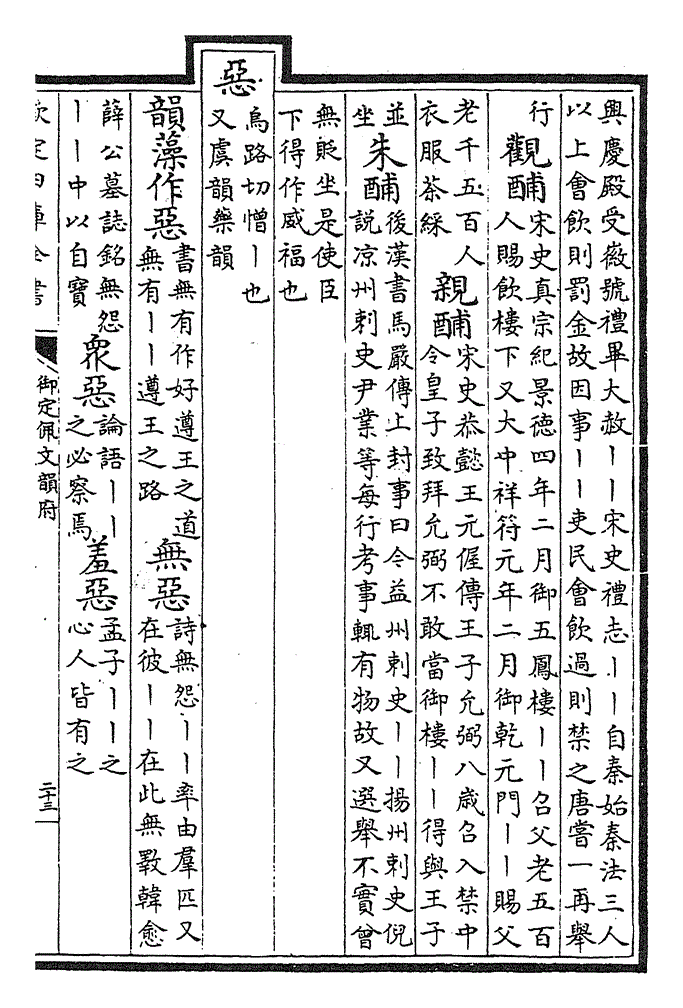 興慶殿受徽號禮畢大赦丨丨宋史禮志丨丨自秦始秦法三人
以上會飲則罰金故因事丨丨吏民會飲過則禁之唐嘗一再舉
行
觀酺
宋史真宗紀景德四年二月御五鳳樓丨丨召父老五百
人賜飲樓下又大中祥符元年二月御乾元門丨丨賜父
老千五百人
衣服茶綵
親酺
宋史恭懿王元偓傳王子允弼八歲召入禁中
令皇子致拜允弼不敢當御樓丨丨得與王子
並
坐
朱酺
後漢書馬嚴傳上封事曰令益州刺史丨丨揚州刺史倪
說凉州刺史尹業等每行考事輒有物故又選舉不實曾
無貶坐是使臣
下得作威福也
惡
烏路切憎丨也
又虞韻樂韻
韻藻作惡
書無有作好遵王之道
無有丨丨遵王之路
無惡
詩無怨丨丨率由羣匹又
在彼丨丨在此無斁韓愈
薛公墓誌銘無怨
丨丨中以自寶
衆惡
論語丨丨
之必察焉
羞惡
孟子丨丨之
心人皆有之
欽定四庫全書
御定佩文韻府
二十三